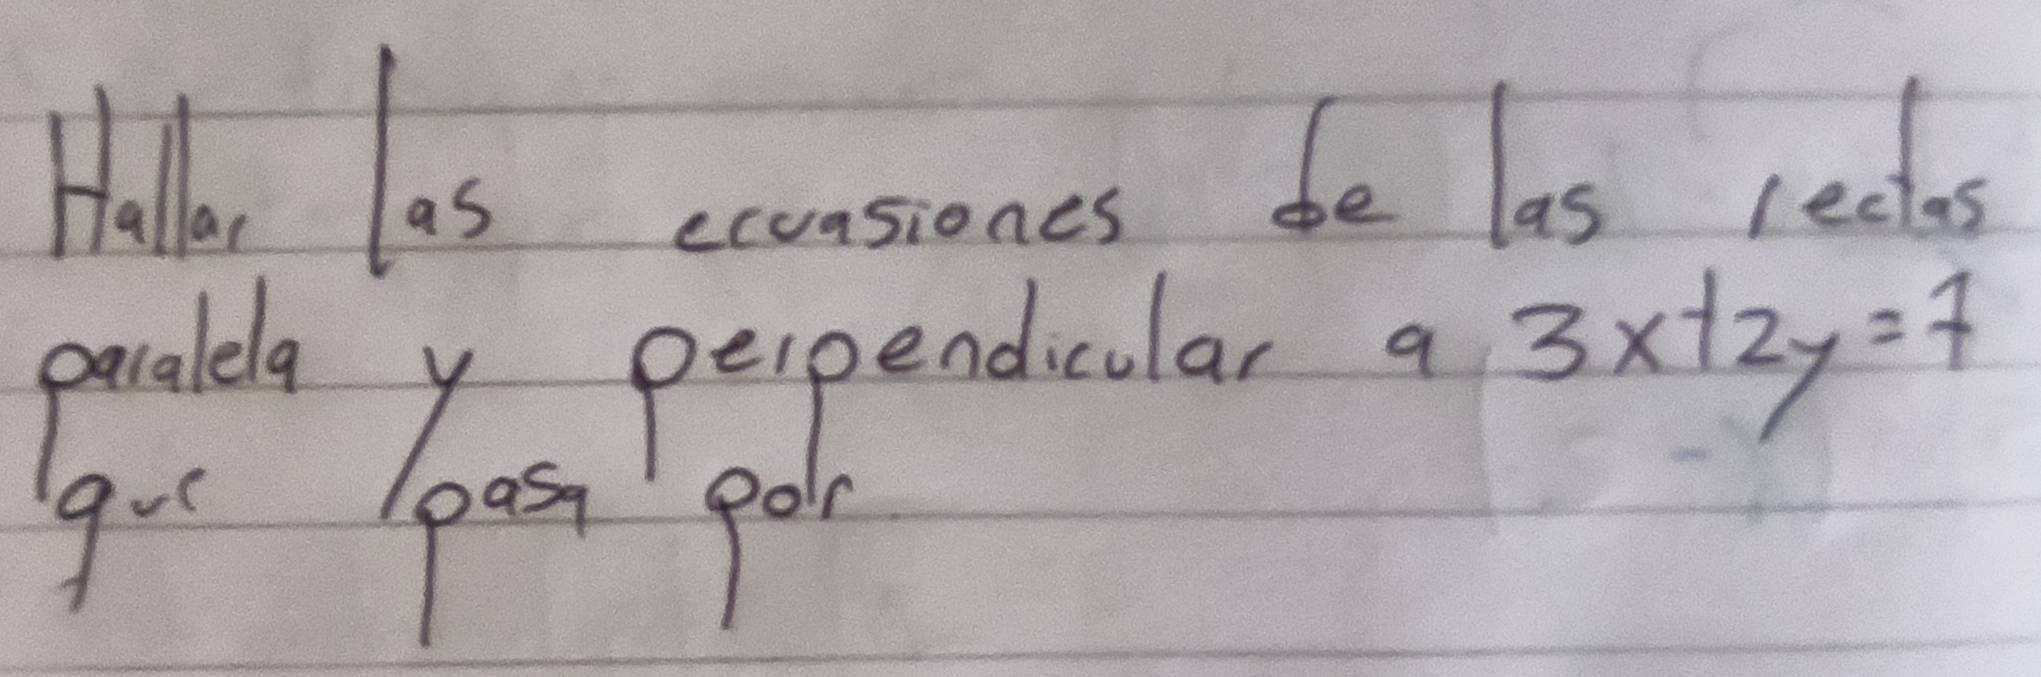 Hallar las ecuasiones de las rectas
paralela y perpendicular a 3x+2y=7
que pasa por